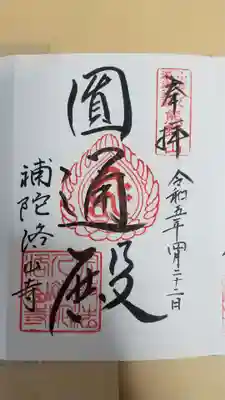 奉拝
令和五年四月二十二日
圓通殿
補陀洛山寺